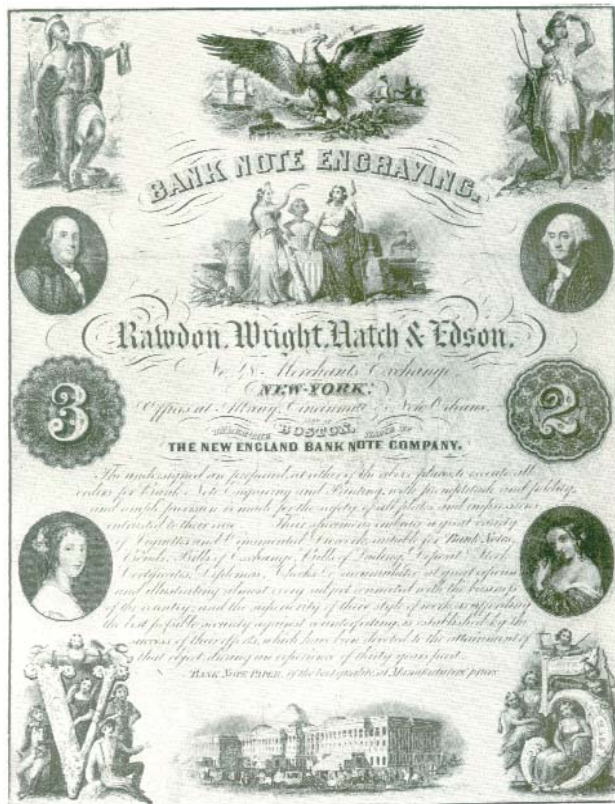 BANK NOTE ENGRAVING.
Rawdon, Wright, Hatch & Edson.
Merchants Exchange
NEW-YORK.
Offices at Albany, Cincinnati & New Orleans.
BOSTON,
NAME OF
THE NEW ENGLAND BANK NOTE COMPANY.
3
2
The undersigned are prepared, at either of the above places, to execute all
orders for Bank Note Engraving and Printing, with promptitude and fidelity,
and ample provision is made for the safety of all plates and impressions
entrusted to their care. Their specimens embrace a great variety
of Vignettes and Ornamental Diework, suitable for Bank Notes,
Bonds, Bills of Exchange, Bills of Lading, Deposit & Stock
Certificates, Diplomas, Checks &c. accumulated at great expense
and illustrating almost every subject connected with the business
of the country; and the superiority of their style of work, as affording
the best possible security against counterfeiting, is established by the
success of their efforts, which have been devoted to the attainment of
that object during an experience of thirty years past.
BANK NOTE PAPER, of the best qualities, at Manufacturers' prices
V
5